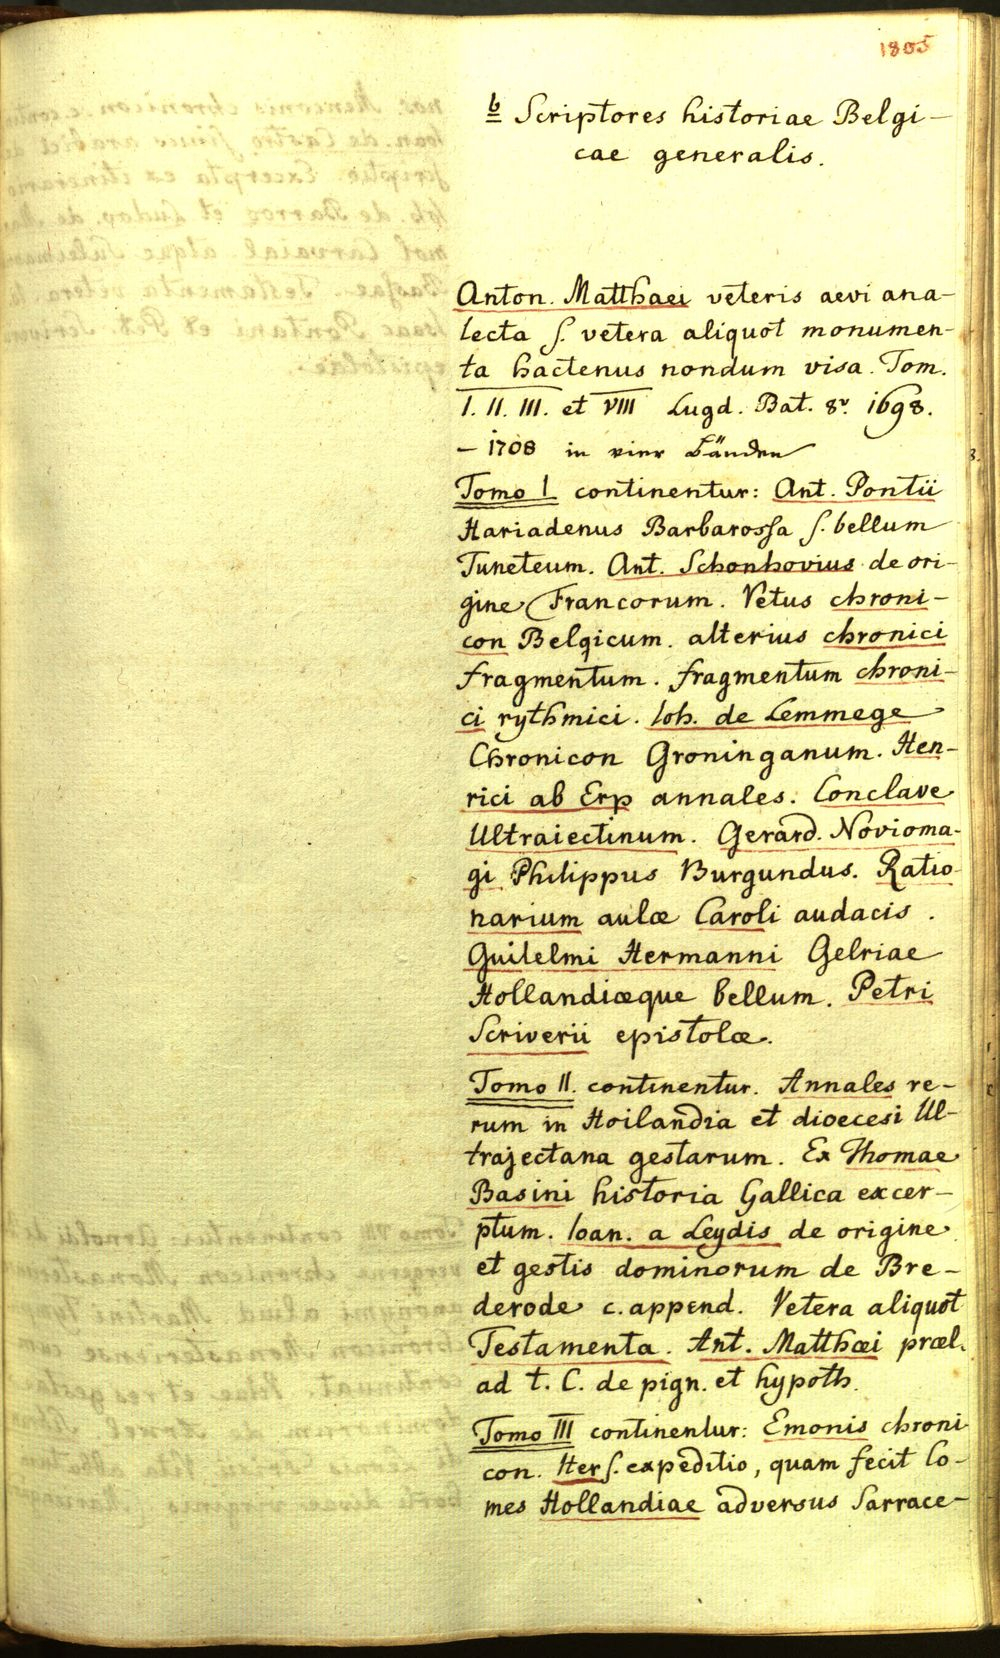 1805
b Scriptores historiae Belgi-
cae generalis.
Anton. Matthaei veteris aevi ana-
lecta s. vetera aliquot monumen-
ta hactenus nondum visa. Tom.
I. II. III. et VIII Lugd. Bat. 8º. 1698.
- 1708 in vier Bänden
Tomo I continentur: Ant. Pontii
Hariadenus Barbarossa s. bellum
Tuneteum. Ant. Schonhovius de ori-
gine Francorum. Vetus chroni-
con Belgicum. alterius chronici
fragmentum. fragmentum chroni-
ci rythmici. Ioh. de Lemmege
Chronicon Groninganum. Hen-
rici ab Erp annales. Conclave
Ultraiectinum. Gerard. Novioma-
gi Philippus Burgundus. Ratio
narium aulæ Caroli audacis.
Guilelmi Hermanni Gelriae
Hollandiæque bellum. Petri
Scriverii epistolæ.
Tomo II. continentur. Annales re-
rum in Hollandia et dioecesi Ul-
trajectana gestarum. Ex Thomae
Basini historia Gallica excer-
ptum. Ioan. a Leydis de origine
et gestis dominorum de Bre-
derode c. append. Vetera aliquot
Testamenta. Ant. Matthæi præl.
ad t. C. de pign. et hypoth.
Tomo III continentur: Emonis chroni
con. Iter s. expeditio, quam fecit Co-
mes Hollandiae adversus Sarrace-